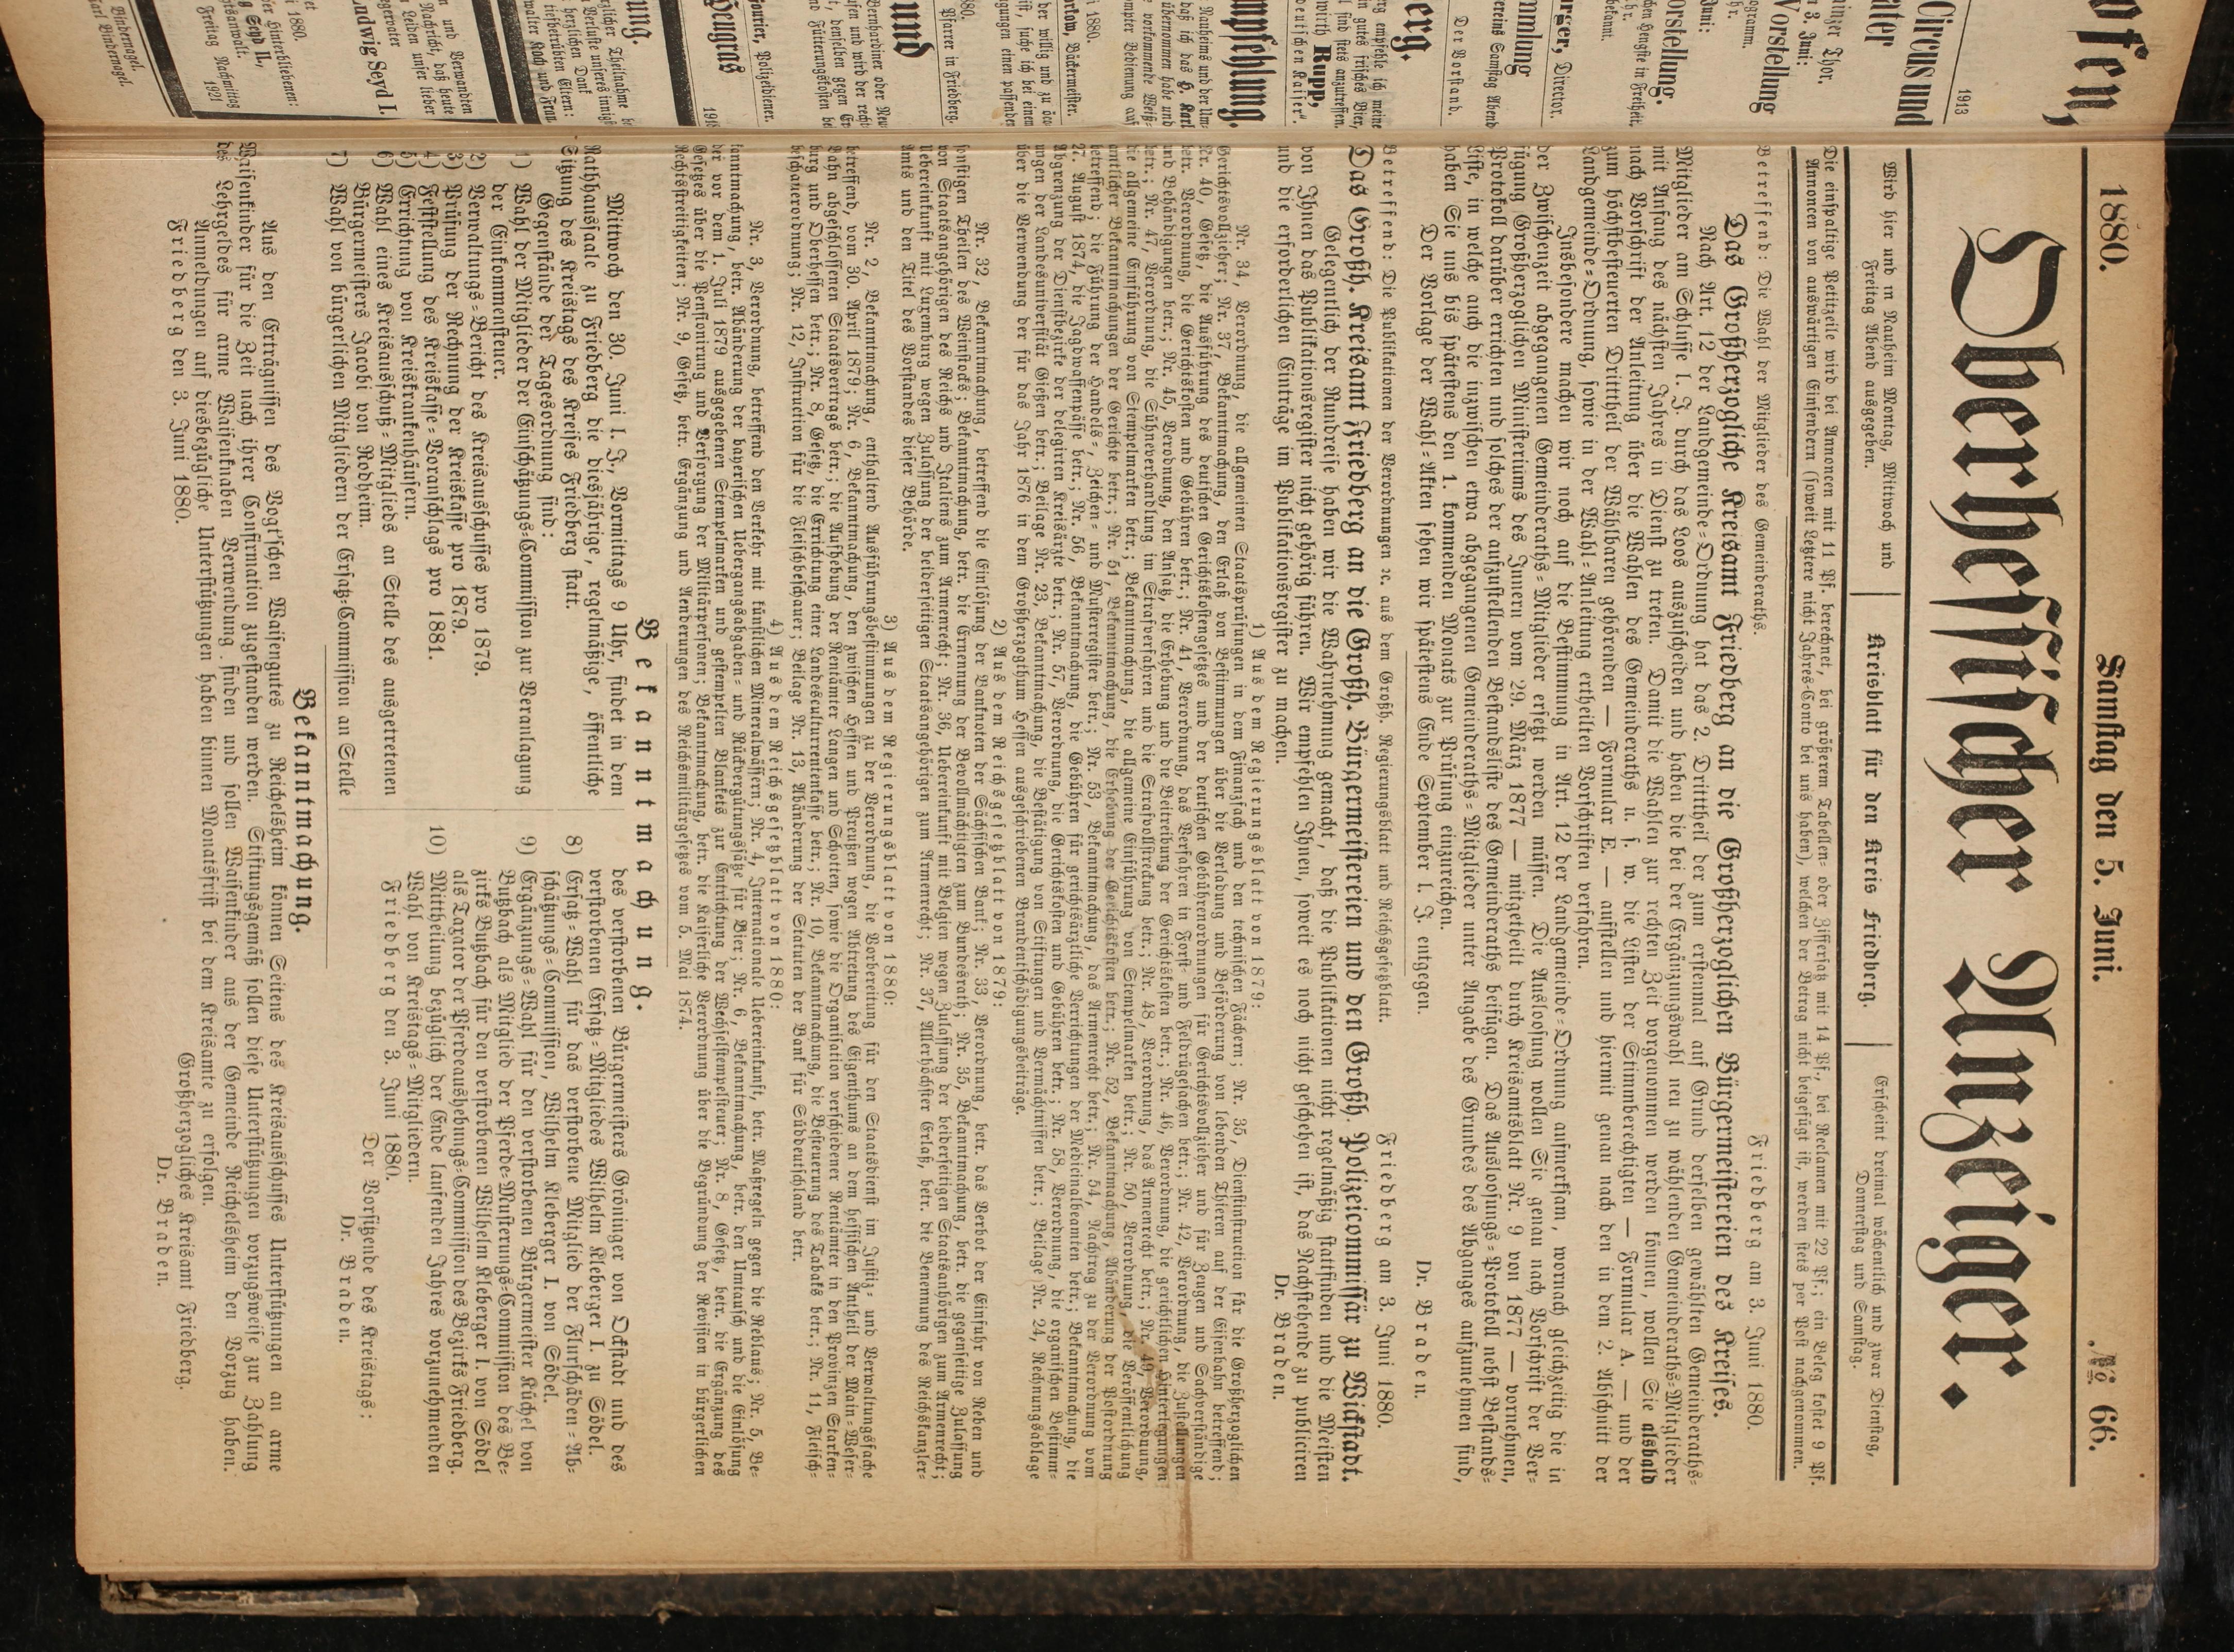 1880.
Samstag den 5. Juni.
№ 66.
Oberhessischer Anzeiger.
Wird hier und in Nauheim Montag, Mittwoch und
Freitag Abend ausgegeben.
Kreisblatt für den Kreis Friedberg.
Erscheint dreimal wöchentlich und zwar Dienstag,
Donnerstag und Samstag.
Die einspaltige Petitzeile wird bei Annoncen mit 11 Pf. berechnet, bei größerem Tabellen- oder Ziffersatz mit 14 Pf., bei Reclamen mit 22 Pf.; ein Beleg kostet 9 Pf.
Annoncen von auswärtigen Einsendern (soweit Letztere nicht Jahres-Conto bei uns haben), welchen der Betrag nicht beigefügt ist, werden stets per Post nachgenommen.
Betreffend: Die Wahl der Mitglieder des Gemeinderaths.
Friedberg am 3. Juni 1880.
Das Großherzogliche Kreisamt Friedberg an die Großherzoglichen Bürgermeistereien des Kreises.
Nach Art. 12 der Landgemeinde-Ordnung hat das 2. Drittheil der zum erstenmal auf Grund derselben gewählten Gemeinderaths-
Mitglieder am Schlusse l. J. durch das Loos auszuscheiden und haben die bei der Ergänzungswahl neu zu wählenden Gemeinderaths-Mitglieder
mit Anfang des nächsten Jahres in Dienst zu treten. Damit die Wahlen zur rechten Zeit vorgenommen werden können, wollen Sie alsbald
nach Vorschrift der Anleitung über die Wahlen des Gemeinderaths u. s. w. die Listen der Stimmberechtigten — Formular A. — und der
zum höchstbesteuerten Drittheil der Wählbaren gehörenden — Formular E. — aufstellen und hiermit genau nach den in dem 2. Abschnitt der
Landgemeinde-Ordnung, sowie in der Wahl-Anleitung ertheilten Vorschriften verfahren.
Insbesondere machen wir noch auf die Bestimmung in Art. 12 der Landgemeinde-Ordnung aufmerksam, wornach gleichzeitig die in
der Zwischenzeit abgegangenen Gemeinderaths-Mitglieder ersetzt werden müssen. Die Ausloosung wollen Sie genau nach Vorschrift der Ver-
fügung Großherzoglichen Ministeriums des Innern vom 29. März 1877 — mitgetheilt durch Kreisamtsblatt Nr. 9 von 1877 — vornehmen,
Protokoll darüber errichten und solches der aufzustellenden Bestandsliste des Gemeinderaths beifügen. Das Ausloosungs-Protokoll nebst Bestands-
liste, in welche auch die inzwischen etwa abgegangenen Gemeinderaths-Mitglieder unter Angabe des Grundes des Abganges aufzunehmen sind,
haben Sie uns bis spätestens den 1. kommenden Monats zur Prüfung einzureichen.
Der Vorlage der Wahl-Akten sehen wir spätestens Ende September l. J. entgegen.
Dr. Braden.
Betreffend: Die Publikationen der Verordnungen ꝛc. aus dem Großh. Regierungsblatt und Reichsgesetzblatt.
Friedberg am 3. Juni 1880.
Das Großh. Kreisamt Friedberg an die Großh. Bürgermeistereien und den Großh. Polizeicommissär zu Wickstadt.
Gelegentlich der Rundreise haben wir die Wahrnehmung gemacht, daß die Publikationen nicht regelmäßig stattfinden und die Meisten
von Ihnen das Publikationsregister nicht gehörig führen. Wir empfehlen Ihnen, soweit es noch nicht geschehen ist, das Nachstehende zu publiciren
und die erforderlichen Einträge im Publikationsregister zu machen.
Dr. Braden.
1) Aus dem Regierungsblatt von 1879:
Nr. 34, Verordnung, die allgemeinen Staatsprüfungen in dem Finanzfach und den technischen Fächern; Nr. 35, Dienstinstruction für die Großherzoglichen
Gerichtsvollzieher; Nr. 37, Bekanntmachung, den Erlaß von Bestimmungen über die Verladung und Beförderung von lebenden Thieren auf der Eisenbahn betreffend;
Nr. 40, Gesetz, die Ausführung des deutschen Gerichtskostengesetzes und der deutschen Gebührenordnungen für Gerichtsvollzieher und für Zeugen und Sachverständige
betr. Verordnung, die Gerichtskosten und Gebühren betr.; Nr. 41, Verordnung, das Verfahren in Forst- und Feldrügesachen betr.; Nr. 42, Verordnung, die Zustellungen
und Behändigungen betr.; Nr. 45, Verordnung, den Ansatz, die Erhebung und die Beitreibung der Gerichtskosten betr.; Nr. 46, Verordnung, die gerichtlichen Hinterlegungen
betr.; Nr. 47, Verordnung, die Sühneverhandlung im Strafverfahren und die Strafvollstreckung betr.; Nr. 48, Verordnung, das Armenrecht betr.; Nr. 49, Verordnung,
die allgemeine Einführung von Stempelmarken betr.; Bekanntmachung, die allgemeine Einführung von Stempelmarken betr.; Nr. 50, Verordnung, die Veröffentlichung
amtlicher Bekanntmachungen der Gerichte betr.; Nr. 51, Bekanntmachung, die Erhebung der Gerichtskosten betr.; Nr. 52, Bekanntmachung, Abänderung der Postordnung
betreffend; die Führung der Handels-, Zeichen- und Musterregister betr.; Nr. 53, Bekanntmachung, das Armenrecht betr.; Nr. 54, Nachtrag zu der Verordnung vom
27. August 1874, die Jagdwaffenpässe betr.; Nr. 56, Bekanntmachung, die Gebühren für gerichtsärztliche Verrichtungen der Medicinalbeamten betr.; Bekanntmachung, die
Abgrenzung der Dienstbezirke der delegirten Kreisärzte betr.; Nr. 57, Verordnung, die Gerichtskosten und Gebühren betr.; Nr. 58, Verordnung, die organischen Bestimm-
ungen der Landesuniversität Gießen betr.; Beilage Nr. 23, Bekanntmachung, die Bestätigung von Stiftungen und Vermächtnissen betr.; Beilage Nr. 24, Rechnungsablage
über die Verwendung der für das Jahr 1876 in dem Großherzogthum Hessen ausgeschriebenen Brandentschädigungsbeiträge.
2) Aus dem Reichsgesetzblatt von 1879:
Nr. 32, Bekanntmachung, betreffend die Einlösung der Banknoten der Sächsischen Bank; Nr. 33, Verordnung, betr. das Verbot der Einfuhr von Reben und
sonstigen Theilen des Weinstocks; Bekanntmachung, betr. die Ernennung der Bevollmächtigten zum Bundesrath; Nr. 35, Bekanntmachung, betr. die gegenseitige Zulassung
von Staatsangehörigen des Reichs und Italiens zum Armenrecht; Nr. 36, Uebereinkunft mit Belgien wegen Zulassung der beiderseitigen Staatsanhörigen zum Armenrecht;
Uebereinkunft mit Luxemburg wegen Zulassung der beiderseitigen Staatsangehörigen zum Armenrecht; Nr. 37, Allerhöchster Erlaß, betr. die Benennung des Reichskanzler-
Amts und den Titel des Vorstandes dieser Behörde.
3) Aus dem Regierungsblatt von 1880:
Nr. 2, Bekanntmachung, enthaltend Ausführungsbestimmungen zu der Verordnung, die Vorbereitung für den Staatsdienst im Justiz- und Verwaltungsfache
betreffend, vom 30. April 1879; Nr. 6, Bekanntmachung, den zwischen Hessen und Preußen wegen Abtretung des Eigenthums an dem hessischen Antheil der Main-Weser-
Bahn abgeschlossenen Staatsvertrags betr.; die Aufhebung der Rentämter Langen und Schotten, sowie die Organisation verschiedener Rentämter in den Provinzen Starken-
burg und Oberhessen betr.; Nr. 8, Gesetz, die Errichtung einer Landesculturrentenkasse betr.; Nr. 10, Bekanntmachung, die Besteuerung des Tabaks betr.; Nr. 11, Fleisch-
beschauerordnung; Nr. 12, Instruction für die Fleischbeschauer; Beilage Nr. 13, Abänderung der Statuten der Bank für Süddeutschland betr.
4) Aus dem Reichsgesetzblatt von 1880:
Nr. 3, Verordnung, betreffend den Verkehr mit künstlichen Mineralwässern; Nr. 4, Internationale Uebereinkunft, betr. Maßregeln gegen die Reblaus; Nr. 5, Be-
kanntmachung, betr. Abänderung der bayerischen Uebergangsabgaben- und Rückvergütungssätze für Bier; Nr. 6, Bekanntmachung, betr. den Umtausch und die Einlösung
der vor dem 1. Juli 1879 ausgegebenen Stempelmarken und gestempelten Blankets zur Entrichtung der Wechselstempelsteuer; Nr. 8, Gesetz, betr. die Ergänzung des
Gesetzes über die Pensionirung und Versorgung der Militärpersonen; Bekanntmachung, betr. die Kaiserliche Verordnung über die Begründung der Revision in bürgerlichen
Rechtsstreitigkeiten; Nr. 9, Gesetz, betr. Ergänzung und Aenderungen des Reichsmilitärgesetzes vom 5. Mai 1874.
Bekanntmachung.
Mittwoch den 30. Juni l. J., Vormittags 9 Uhr, findet in dem
Rathhaussaale zu Friedberg die diesjährige, regelmäßige, öffentliche
Sitzung des Kreistags des Kreises Friedberg statt.
Gegenstände der Tagesordnung sind:
1) Wahl der Mitglieder der Einschätzungs-Commission zur Veranlagung
der Einkommensteuer.
2) Verwaltungs-Bericht des Kreisausschusses pro 1879.
3) Prüfung der Rechnung der Kreiskasse pro 1879.
4) Feststellung des Kreiskasse-Voranschlags pro 1881.
5) Errichtung von Kreiskrankenhäusern.
6) Wahl eines Kreisausschuß-Mitglieds an Stelle des ausgetretenen
Bürgermeisters Jacobi von Rodheim.
7) Wahl von bürgerlichen Mitgliedern der Ersatz-Commission an Stelle
des verstorbenen Bürgermeisters Gröninger von Ockstadt und des
verstorbenen Ersatz-Mitgliedes Wilhelm Kleberger I. zu Södel.
8) Ersatz-Wahl für das verstorbene Mitglied der Flurschäden-Ab-
schätzungs-Commission, Wilhelm Kleberger I. von Södel.
9) Ergänzungs-Wahl für den verstorbenen Bürgermeister Küchel von
Butzbach als Mitglied der Pferde-Musterungs-Commission des Be-
zirks Butzbach für den verstorbenen Wilhelm Kleberger I. von Södel
als Taxator der Pferdeaushebungs-Commission des Bezirks Friedberg.
10) Mittheilung bezüglich der Ende laufenden Jahres vorzunehmenden
Wahl von Kreistags-Mitgliedern.
Friedberg den 3. Juni 1880.
Der Vorsitzende des Kreistags:
Dr. Braden.
Bekanntmachung.
Aus den Erträgnissen des Vogt'schen Waisengutes zu Reichelsheim können Seitens des Kreisausschusses Unterstützungen an arme
Waisenkinder für die Zeit nach ihrer Confirmation zugestanden werden. Stiftungsgemäß sollen diese Unterstützungen vorzugsweise zur Zahlung
des Lehrgeldes für arme Waisenknaben Verwendung finden und sollen Waisenkinder aus der Gemeinde Reichelsheim den Vorzug haben.
Anmeldungen auf diesbezügliche Unterstützungen haben binnen Monatsfrist bei dem Kreisamte zu erfolgen.
Friedberg den 3. Juni 1880.
Großherzogliches Kreisamt Friedberg.
Dr. Braden.